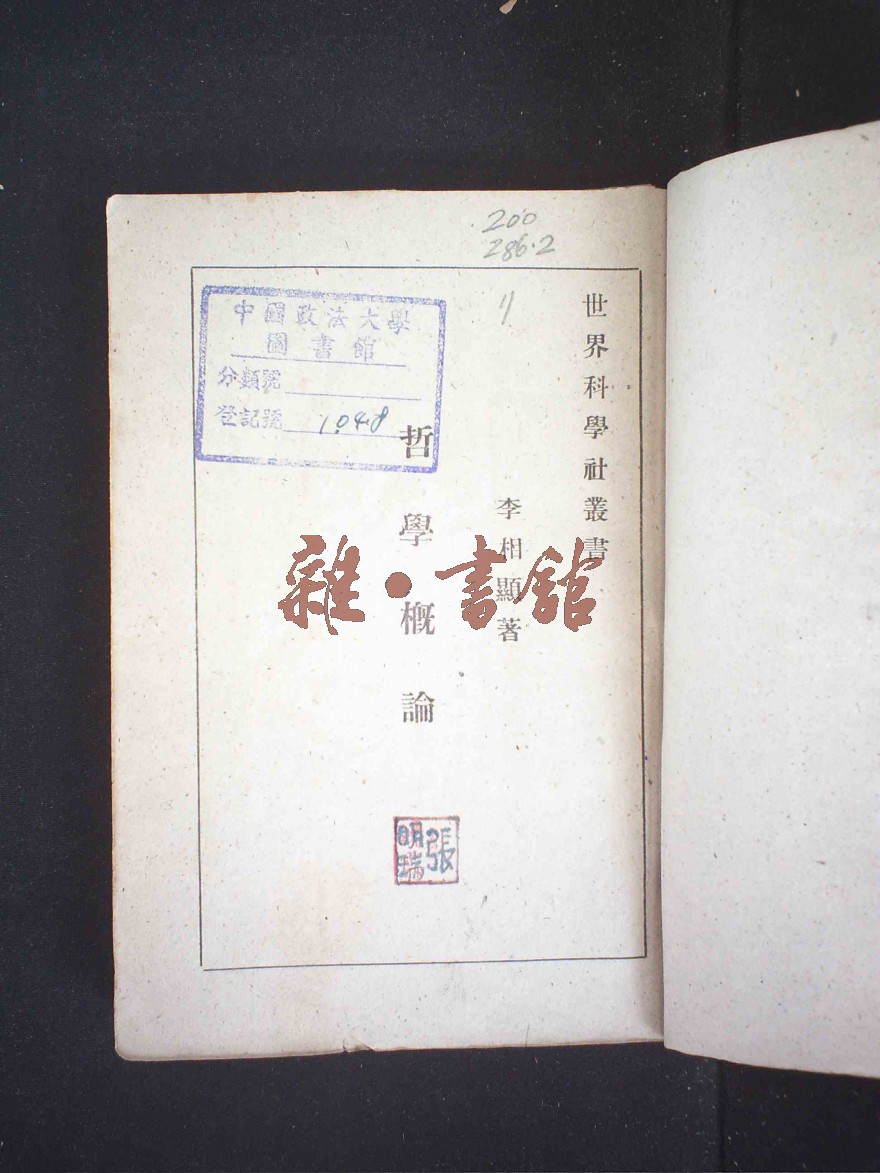 200
286.2
世界科學社叢書
李相顯著
哲學概論
中國政法大學
圖書館
分類號
登記號 1048
張明瑞
雜·書館